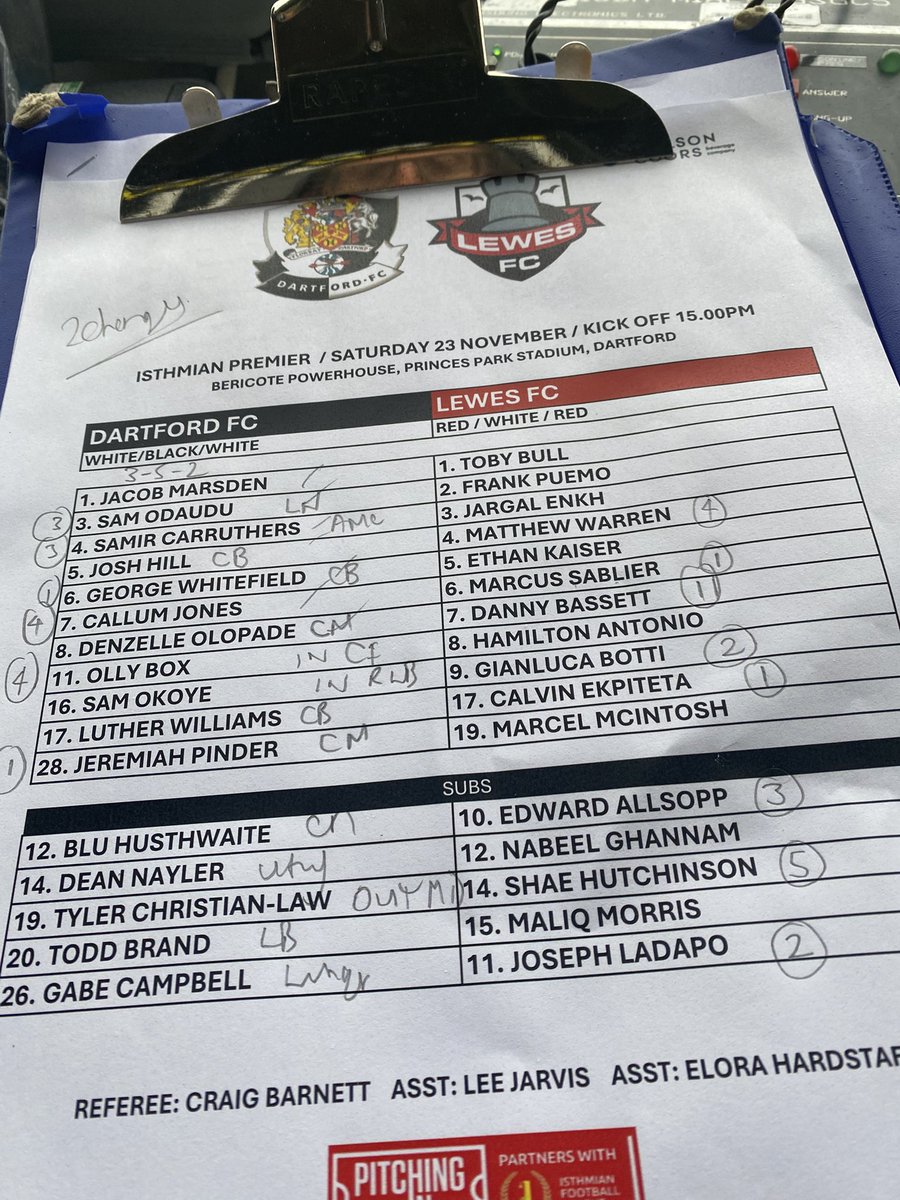 RAPESCO
ELECTRONICS LTD.
ANSWER
SON
ORS
beverage company
DARTFORD-FC
LEWES
FC
2 changes
ISTHMIAN PREMIER / SATURDAY 23 NOVEMBER / KICK OFF 15.00PM
BERICOTE POWERHOUSE, PRINCES PARK STADIUM, DARTFORD
DARTFORD FC
WHITE/BLACK/WHITE
3-5-2
③ 1. JACOB MARSDEN
③ 3. SAM ODAUDU
4. SAMIR CARRUTHERS AMC
5. JOSH HILL CB
① 6. GEORGE WHITEFIELD CB
④ 7. CALLUM JONES
8. DENZELLE OLOPADE CM
④ 11. OLLY BOX IN CF
16. SAM OKOYE IN RWB
17. LUTHER WILLIAMS CB
① 28. JEREMIAH PINDER CM
LEWES FC
RED / WHITE / RED
1. TOBY BULL
2. FRANK PUEMO
3. JARGAL ENKH
4. MATTHEW WARREN ④
5. ETHAN KAISER
6. MARCUS SABLIER ①
7. DANNY BASSETT ①
8. HAMILTON ANTONIO
9. GIANLUCA BOTTI ②
17. CALVIN EKPITETA ①
19. MARCEL MCINTOSH
SUBS
12. BLU HUSTHWAITE CM
14. DEAN NAYLER
19. TYLER CHRISTIAN-LAW
20. TODD BRAND LB
26. GABE CAMPBELL
10. EDWARD ALLSOPP ③
12. NABEEL GHANNAM
14. SHAE HUTCHINSON ⑤
15. MALIQ MORRIS
11. JOSEPH LADAPO ②
REFEREE: CRAIG BARNETT ASST: LEE JARVIS ASST: ELORA HARDSTAF
PITCHING
PARTNERS WITH
ISTHMIAN
FOOTBALL